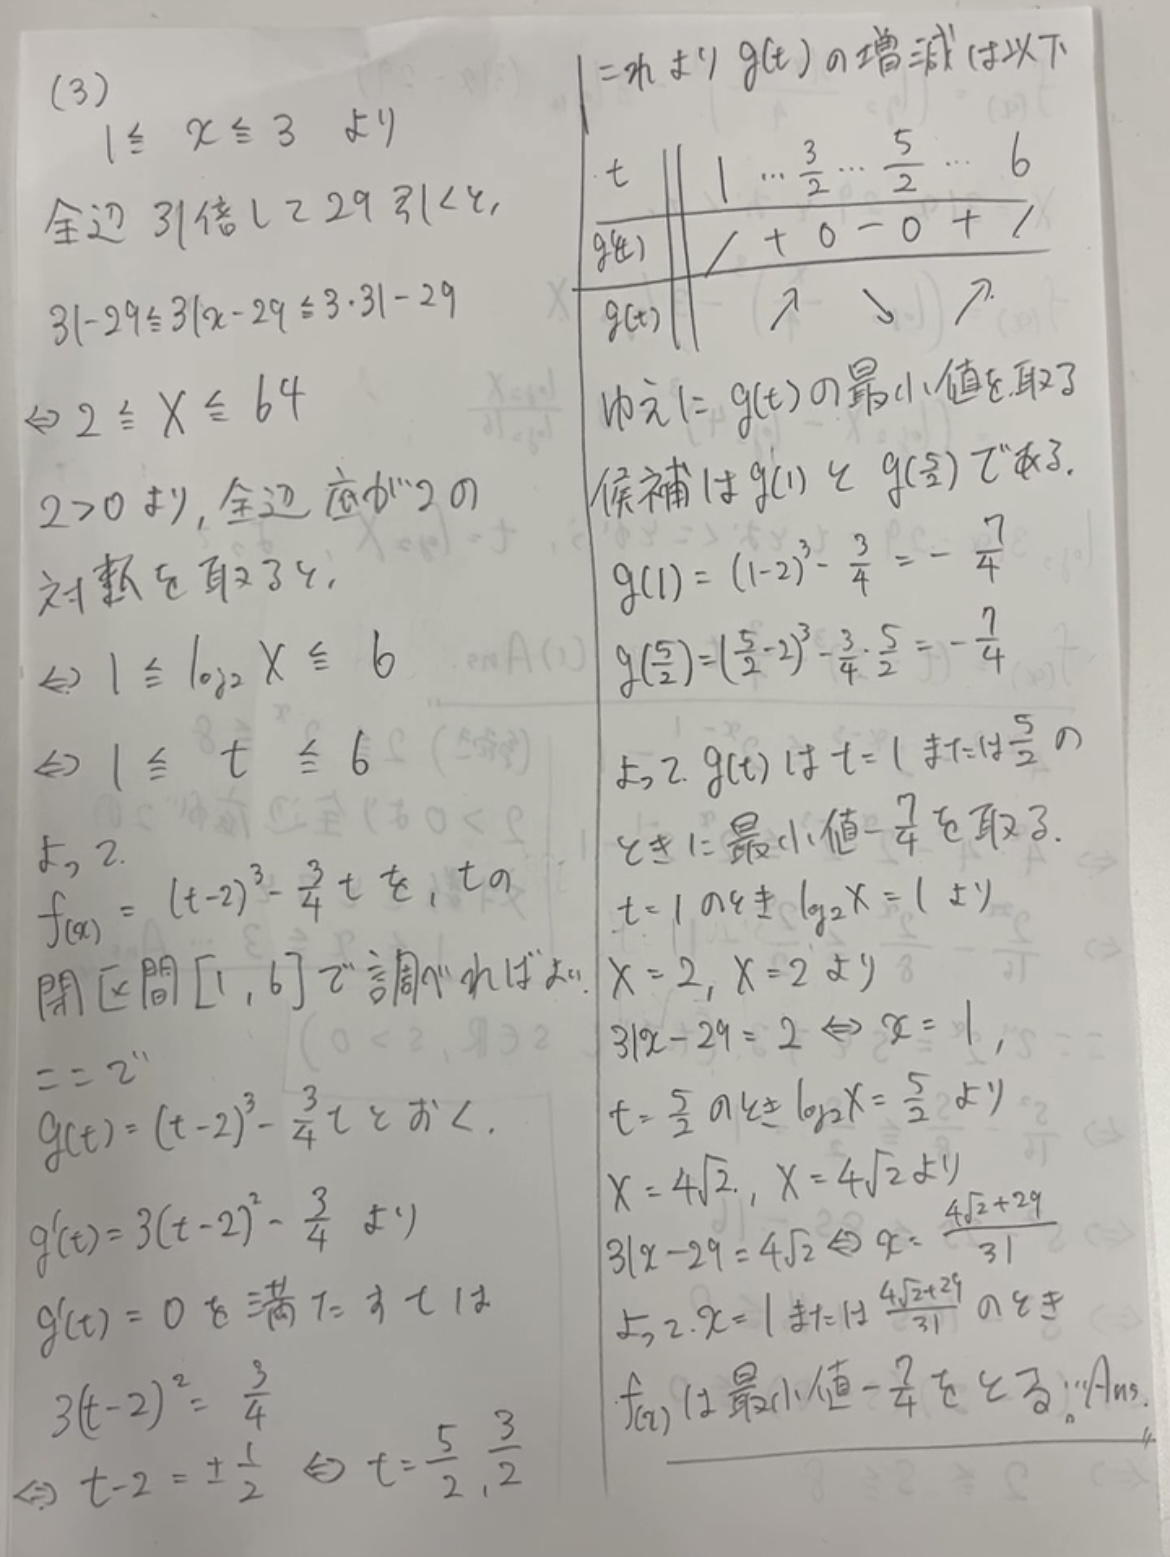 (3)
1 ≦ x ≦ 3 より
全辺 31倍して29引くと,
31-29≦31x-29≦3・31-29
⇔ 2 ≦ X ≦ 64
2>0 より, 全辺底が2の
対数を取ると,
⇔ 1 ≦ log₂X ≦ 6
⇔ 1 ≦ t ≦ 6
よって.
f(x) = (t-2)³ - 3/4 t を, tの
閉区間[1,6]で調べればよい.
ここで
g(t) = (t-2)³ - 3/4 t とおく.
g'(t) = 3(t-2)² - 3/4 より
g'(t) = 0 を満たすtは
3(t-2)² = 3/4
⇔ t-2 = ± 1/2 ⇔ t = 5/2, 3/2
これより g(t) の増減は以下
t 1 … 3/2 … 5/2 … 6
g'(t) / + 0 - 0 + /
g(t) ↗ ↘ ↗
ゆえに g(t)の最小値を取る
候補は g(1) と g(5/2) である.
g(1) = (1-2)³ - 3/4 = - 7/4
g(5/2) = (5/2 - 2)³ - 3/4・5/2 = - 7/4
よって. g(t) は t=1 または 5/2 の
ときに最小値 - 7/4 を取る.
t=1 のとき log₂X = 1 より
X=2, X=2 より
31x-29=2 ⇔ x=1,
t= 5/2 のとき log₂X = 5/2 より
X=4√2, X=4√2 より
31x-29=4√2 ⇔ x= (4√2+29)/31
よって. x=1 または (4√2+29)/31 のとき
f(x) は最小値 - 7/4 をとる。…Ans.